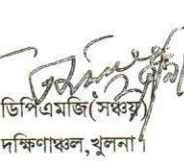 ডিপিএমজি(সঞ্চয়)
দক্ষিণাঞ্চল, খুলনা।